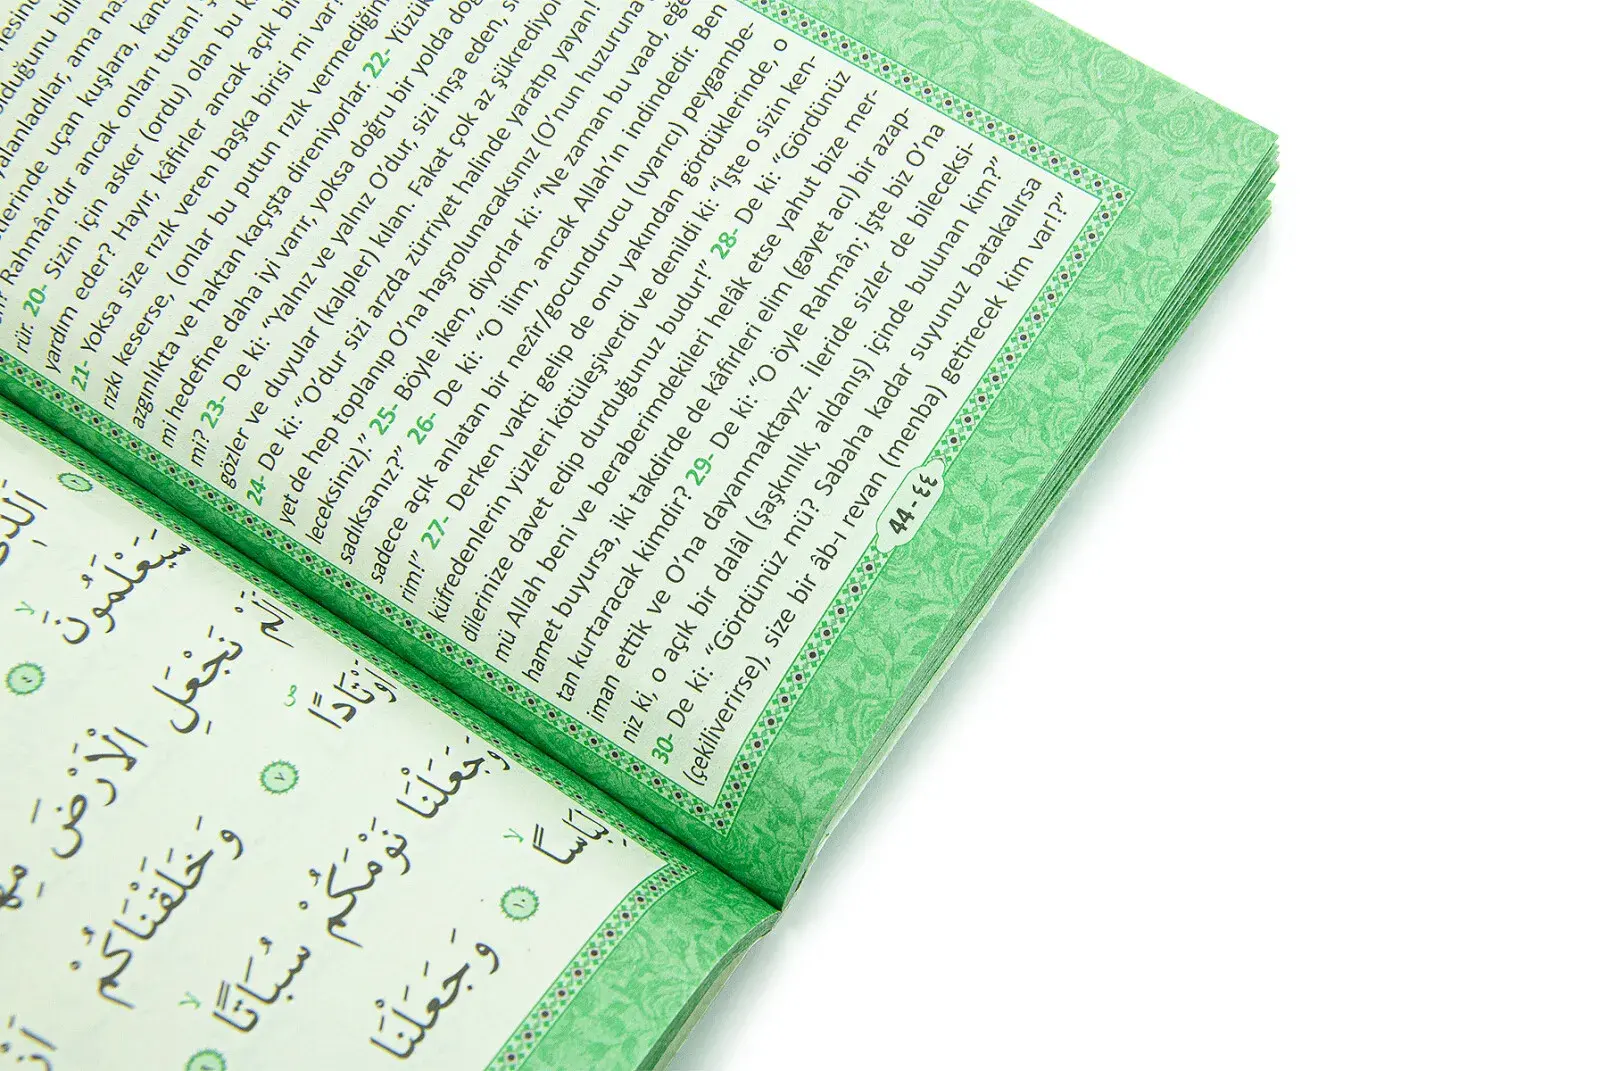 olduğunu
yalanladılar, ama
üstlerinde uçan kuşlara,
Rahmân'dır ancak onları tutan!
rür. 20- Sizin için asker (ordu) olan bu
yardım eder? Hayır, kâfirler ancak açık bir
21- Yoksa size rızık veren başka birisi mi var?
rızkı keserse, (onlar bu putun rızık vermediğini
azgınlıkta ve haktan kaçışta direniyorlar. 22- Yüzük
mi hedefine daha iyi varır, yoksa doğru bir yolda
mi? 23- De ki: "Yalnız ve yalnız O'dur, sizi inşa eden,
gözler ve duyular (kalpler) kılan. Fakat çok az şükrediyor
24- De ki: "O'dur sizi arzda zürriyet halinde yaratıp yayan!
yet de hep toplanıp O'na haşrolunacaksınız (O'nun huzuruna
leceksiniz)." 25- Böyle iken, diyorlar ki: "Ne zaman bu vaad, eğe
sadıksanız?" 26- De ki: "O ilim, ancak Allah'ın indindedir. Ben
sadece açık anlatan bir nezîr/gocundurucu (uyarıcı) peygambe-
rim!" 27- Derken vakti gelip de onu yakından gördüklerinde, o
küfredenlerin yüzleri kötüleşiverdi ve denildi ki: "İşte o sizin ken-
dilerinize davet edip durduğunuz budur!" 28- De ki: "Gördünüz
mü Allah beni ve beraberimdekileri helâk etse yahut bize mer-
hamet buyursa, iki takdirde de kâfirleri elim (gayet acı) bir azap-
tan kurtaracak kimdir? 29- De ki: "O öyle Rahmân; İşte biz O'na
iman ettik ve O'na dayanmaktayız. İleride sizler de bileceksi-
niz ki, o açık bir dalâl (şaşkınlık, aldanış) içinde bulunan kim?"
30- De ki: "Gördünüz mü? Sabaha kadar suyunuz batakalırsa
(çekiliverirse), size bir âb-ı revan (menba) getirecek kim var!?"
44-٤٤
سَيَعْلَمُونَ ٤
اَلَمْ نَجْعَلِ الْاَرْضَ
اَوْتَادًا ٧ وَخَلَقْنَاكُمْ
وَجَعَلْنَا نَوْمَكُمْ سُبَاتًا ٩
لِبَاسًا ١٠ وَجَعَلْنَا